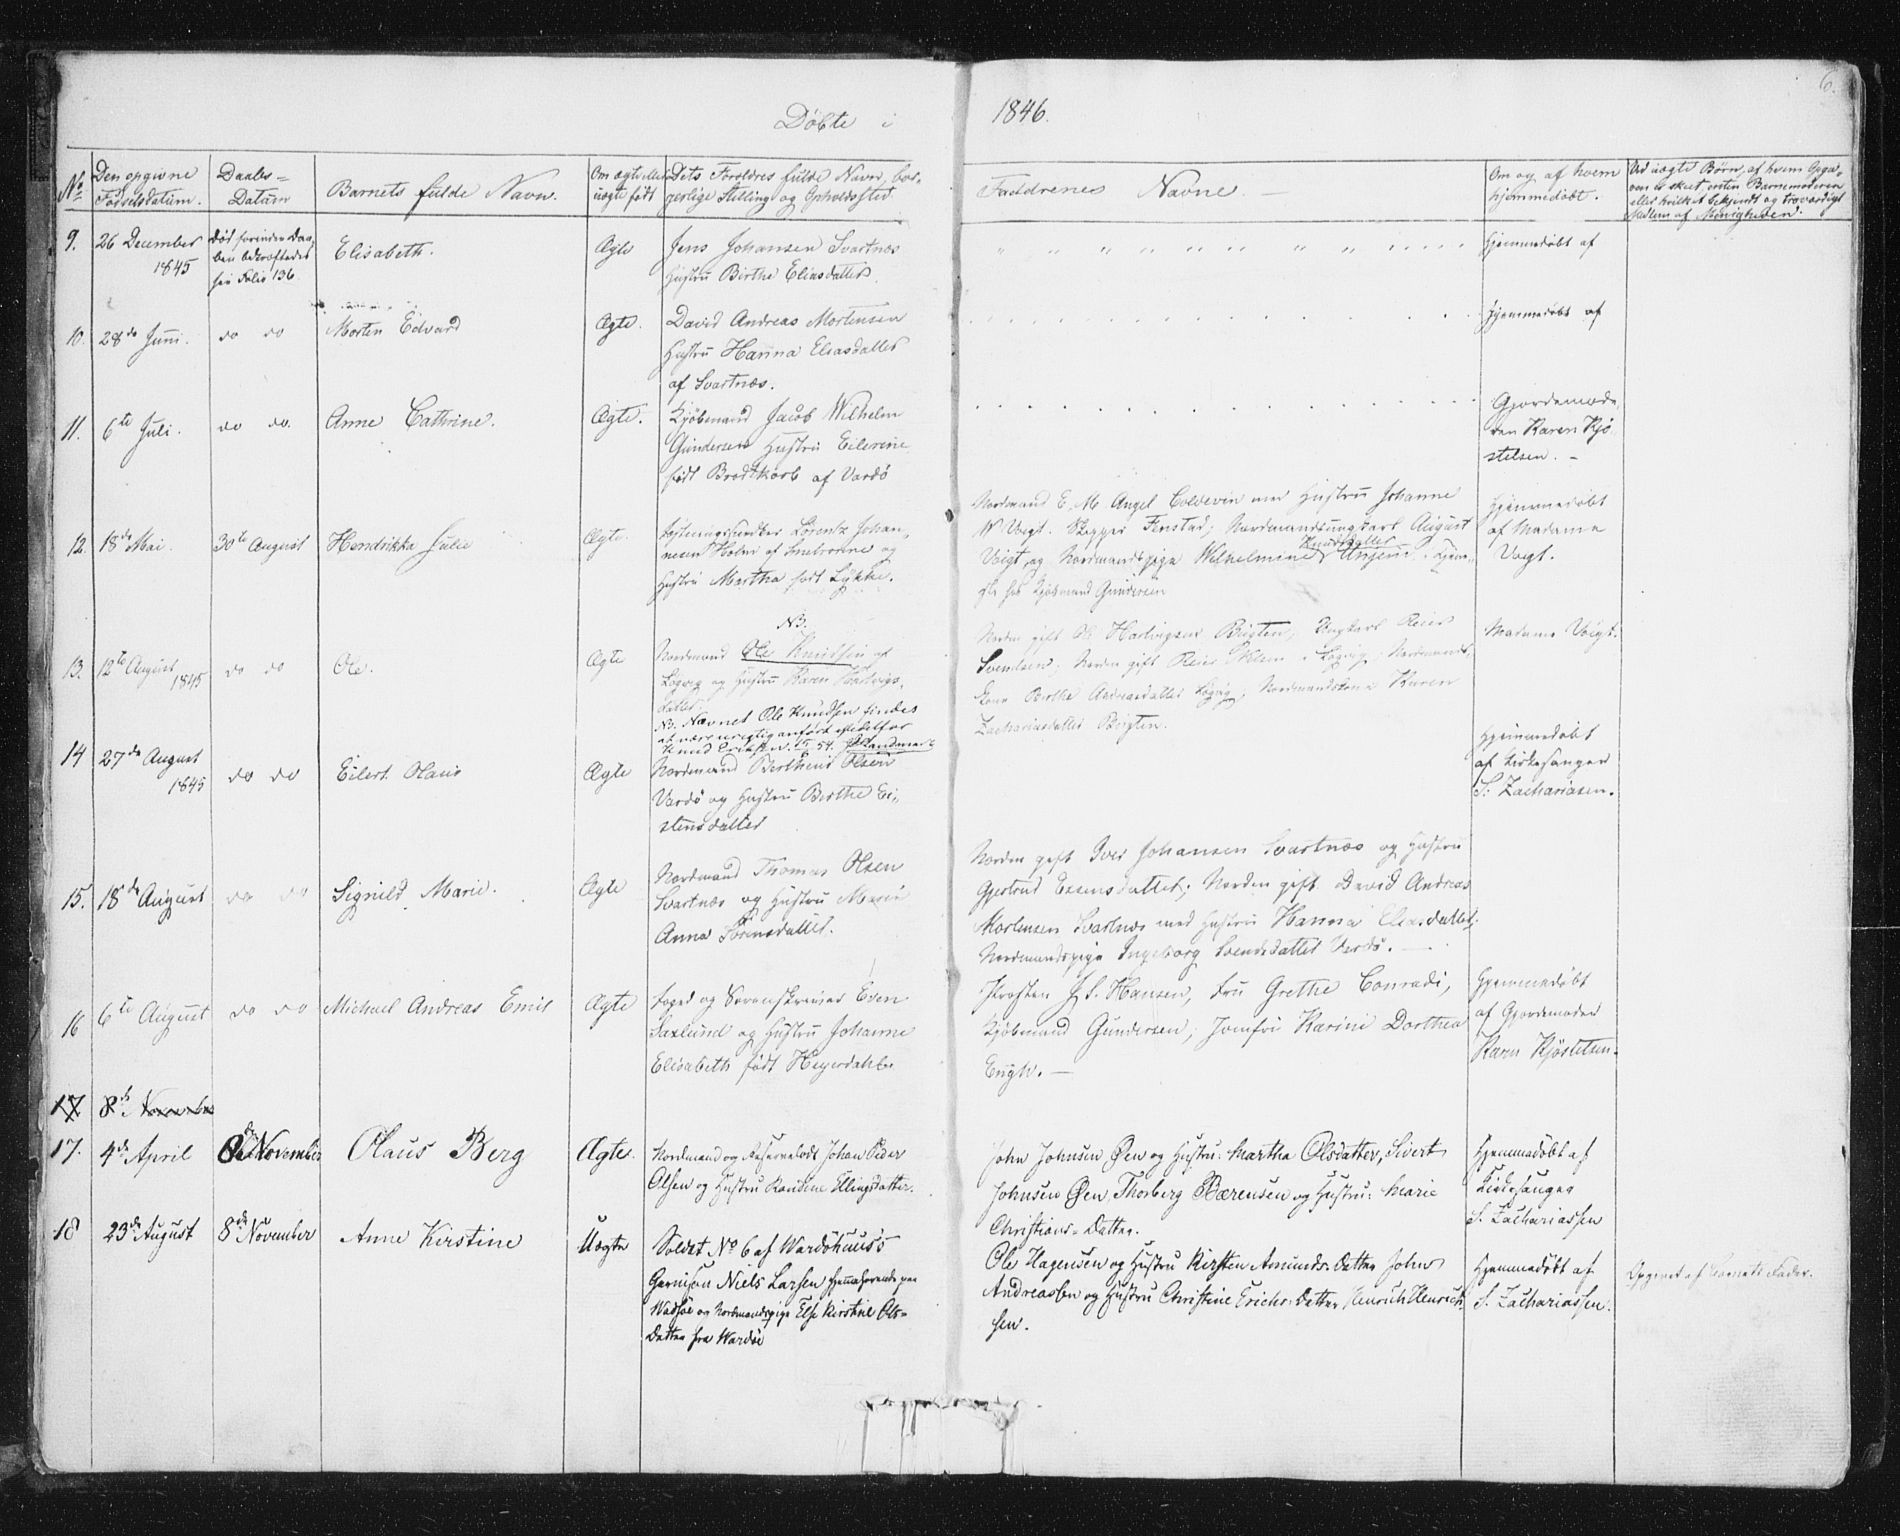 Döbte i 1846.
6.
No
Den opgivne Födselsdatum.
Daabs-Datum
Barnets fulde Navn.
Om ægte eller uægte født
Dets Forældres fulde Navn, borgerlige Stilling og Opholdssted
Faddrenes Navne. —
Om og af hvem hjemmedøbt.
Ved uægte Børn, af hvem Opga-
ven er skeet, enten Barnemoderen
eller hvilket bekjendt og troværdigt
Medlem af Menigheden.
9.
26 December
1845
Död forinden Daa-
ben bekræftedes
see Folio 136
Elisabeth.
Ægte
Jens Johansen Svartnæs
Hustru Birthe Eliasdatter.
Hjemmedøbt af
10.
28de Juni.
do do
Morten Edvard
Ægte.
David Andreas Mortensen
Hustru Hanna Eliasdatter
af Svartnæs.
Hjemmedøbt af
11.
6te Juli.
do do.
Anne Cathrine.
Ægte.
Kjöbmand Jacob Wilhelm
Gundersen Hustru Eilerine
født Brodtkorb af Vardö
Gjordemode-
ren Karen Kjö-
stelsen. —
12.
18de Mai.
30te August
Hendrikka Julie
Ægte.
Lorentz Johan-
nesen Holm af
Hustru Martha født Lykke.
Nordmand E. M. Angel Coldevin med Hustru Johanne
W Voigt. Skipper Finstad; Nordmandsungkarl August
Knudsdatter
Voigt, og Nordmandspige Wilhelmine
hos Kjöbmand Gundersen
Hjemmedøbt
af Madame
Voigt.
13.
12te August
1845
do do
Ole.
Ægte
NB.
Nordmand Ole Knudsen af
og Hustru Karen Hartvigs-
datter.
NB. Nævnet Ole Knudsen findes
at være urigtig anført istedetfor
Knud Eriksen. 54.
Norden gift Ole Hartvigsen Brigten, Ungkarl Reier
Svendsen; Norden gift Reier
kone Birthe Andreasdatter Nordmandskone Karen
Zachariasdatter Brigten.
Madame Voigt.
14
27de August
1845
do do
Eilert Olaus
Ægte
Nordmand Bertheus Olsen
Vardö og Hustru Birthe Ei-
stensdatter
Hjemmedøbt
af Kirkesanger
S. Zachariasen.
15.
18de August
do do
Signild Marie.
Ægte
Nordmand Thomas Olsen
Svartnæs og Hustru Marie
Anna Sörensdatter.
Norden gift Iver Johansen Svartnæs og Hustru
Gjertrud Essensdatter; Norden gift David Andreas
Mortensen Svartnæs med Hustru Hanna Eliasdatter;
Nordmandspige Ingeborg Svendsdatter Vardö. —
16
6te August
do do
Michael Andreas Emil
Ægte
Foged og Sorenskriver Even
Saxlund og Hustru Johanne
Elisabeth født Heyerdahl
Provsten J. S. Hansen, Fru Grethe Conradi,
Kjöbmand Gundersen, Jomfru Karine Dorthea
Engh. —
Hjemmedøbt
af Gjordemoder
Karen Kjöstelsen.
17
8de November
17.
4de April
8de November
Olaus Berg
Ægte.
Nordmand og Reservelods Johan Peder
Olsen og Hustru Karoline Ellingsdatter.
John Johnsen Øen og Hustru: Martha Olsdatter, Sivert
Johnsen Øen, Thorberg Bærensen og Hustru: Marie
Christians-Datter.
Hjemmedøbt af
Kirkesanger
S. Zachariassen
18
23de August
8de November
Anne Kirstine
Uægte
Soldat No 6 af Wardöhuuss
Garnison Niels Larsen Hjemhørende paa
Wadsöe og Nordmandspige Else Kirstine Ols-
Datter fra Wardöe
Ole Hagensen og Hustru Kirsten Amunds-Datter John
Andreassen og Hustru Christine Erichs-Datter Henrich Henrich-
sen.
Hjemmedøbt af
S. Zachariassen.
Opgivet af Barnets Fader.